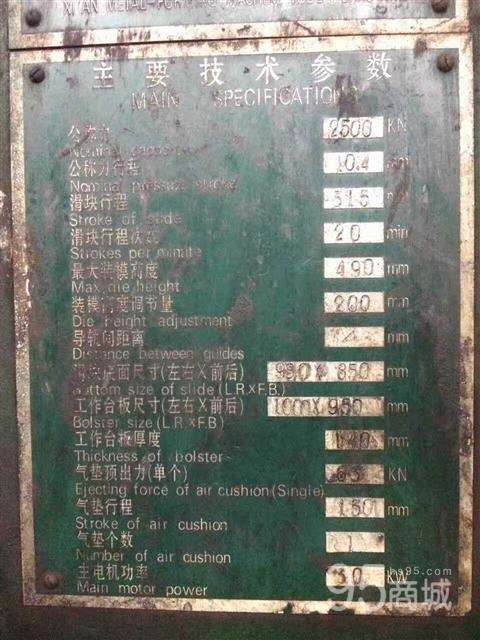 主要技术参数
MAIN SPECIFICATIONS
公称力 2500 KN
Nominal
公称力行程 10.4 mm
Nominal pressure stroke
滑块行程 315
Stroke of slide
滑块行程次数 20 min
Strokes per minute
最大装模高度 490 mm
Max. die height
装模高度调节量 200 mm
Die height adjustment
导轨间距离 mm
Distance between guides
滑块底面尺寸(左右X前后) 990 X 850 mm
Bottom size of slide (L.R.XF.B.)
工作台板尺寸(左右X前后) mm
Bolster size (L.R.XF.B)
工作台板厚度 mm
Thickness of bolster
气垫顶出力(单个) KN
Ejecting force of air cushion(Single)
气垫行程 150 mm
Stroke of air cushion
气垫个数 1
Number of air cushion
主电机功率 30 KW
Main motor power
95商城